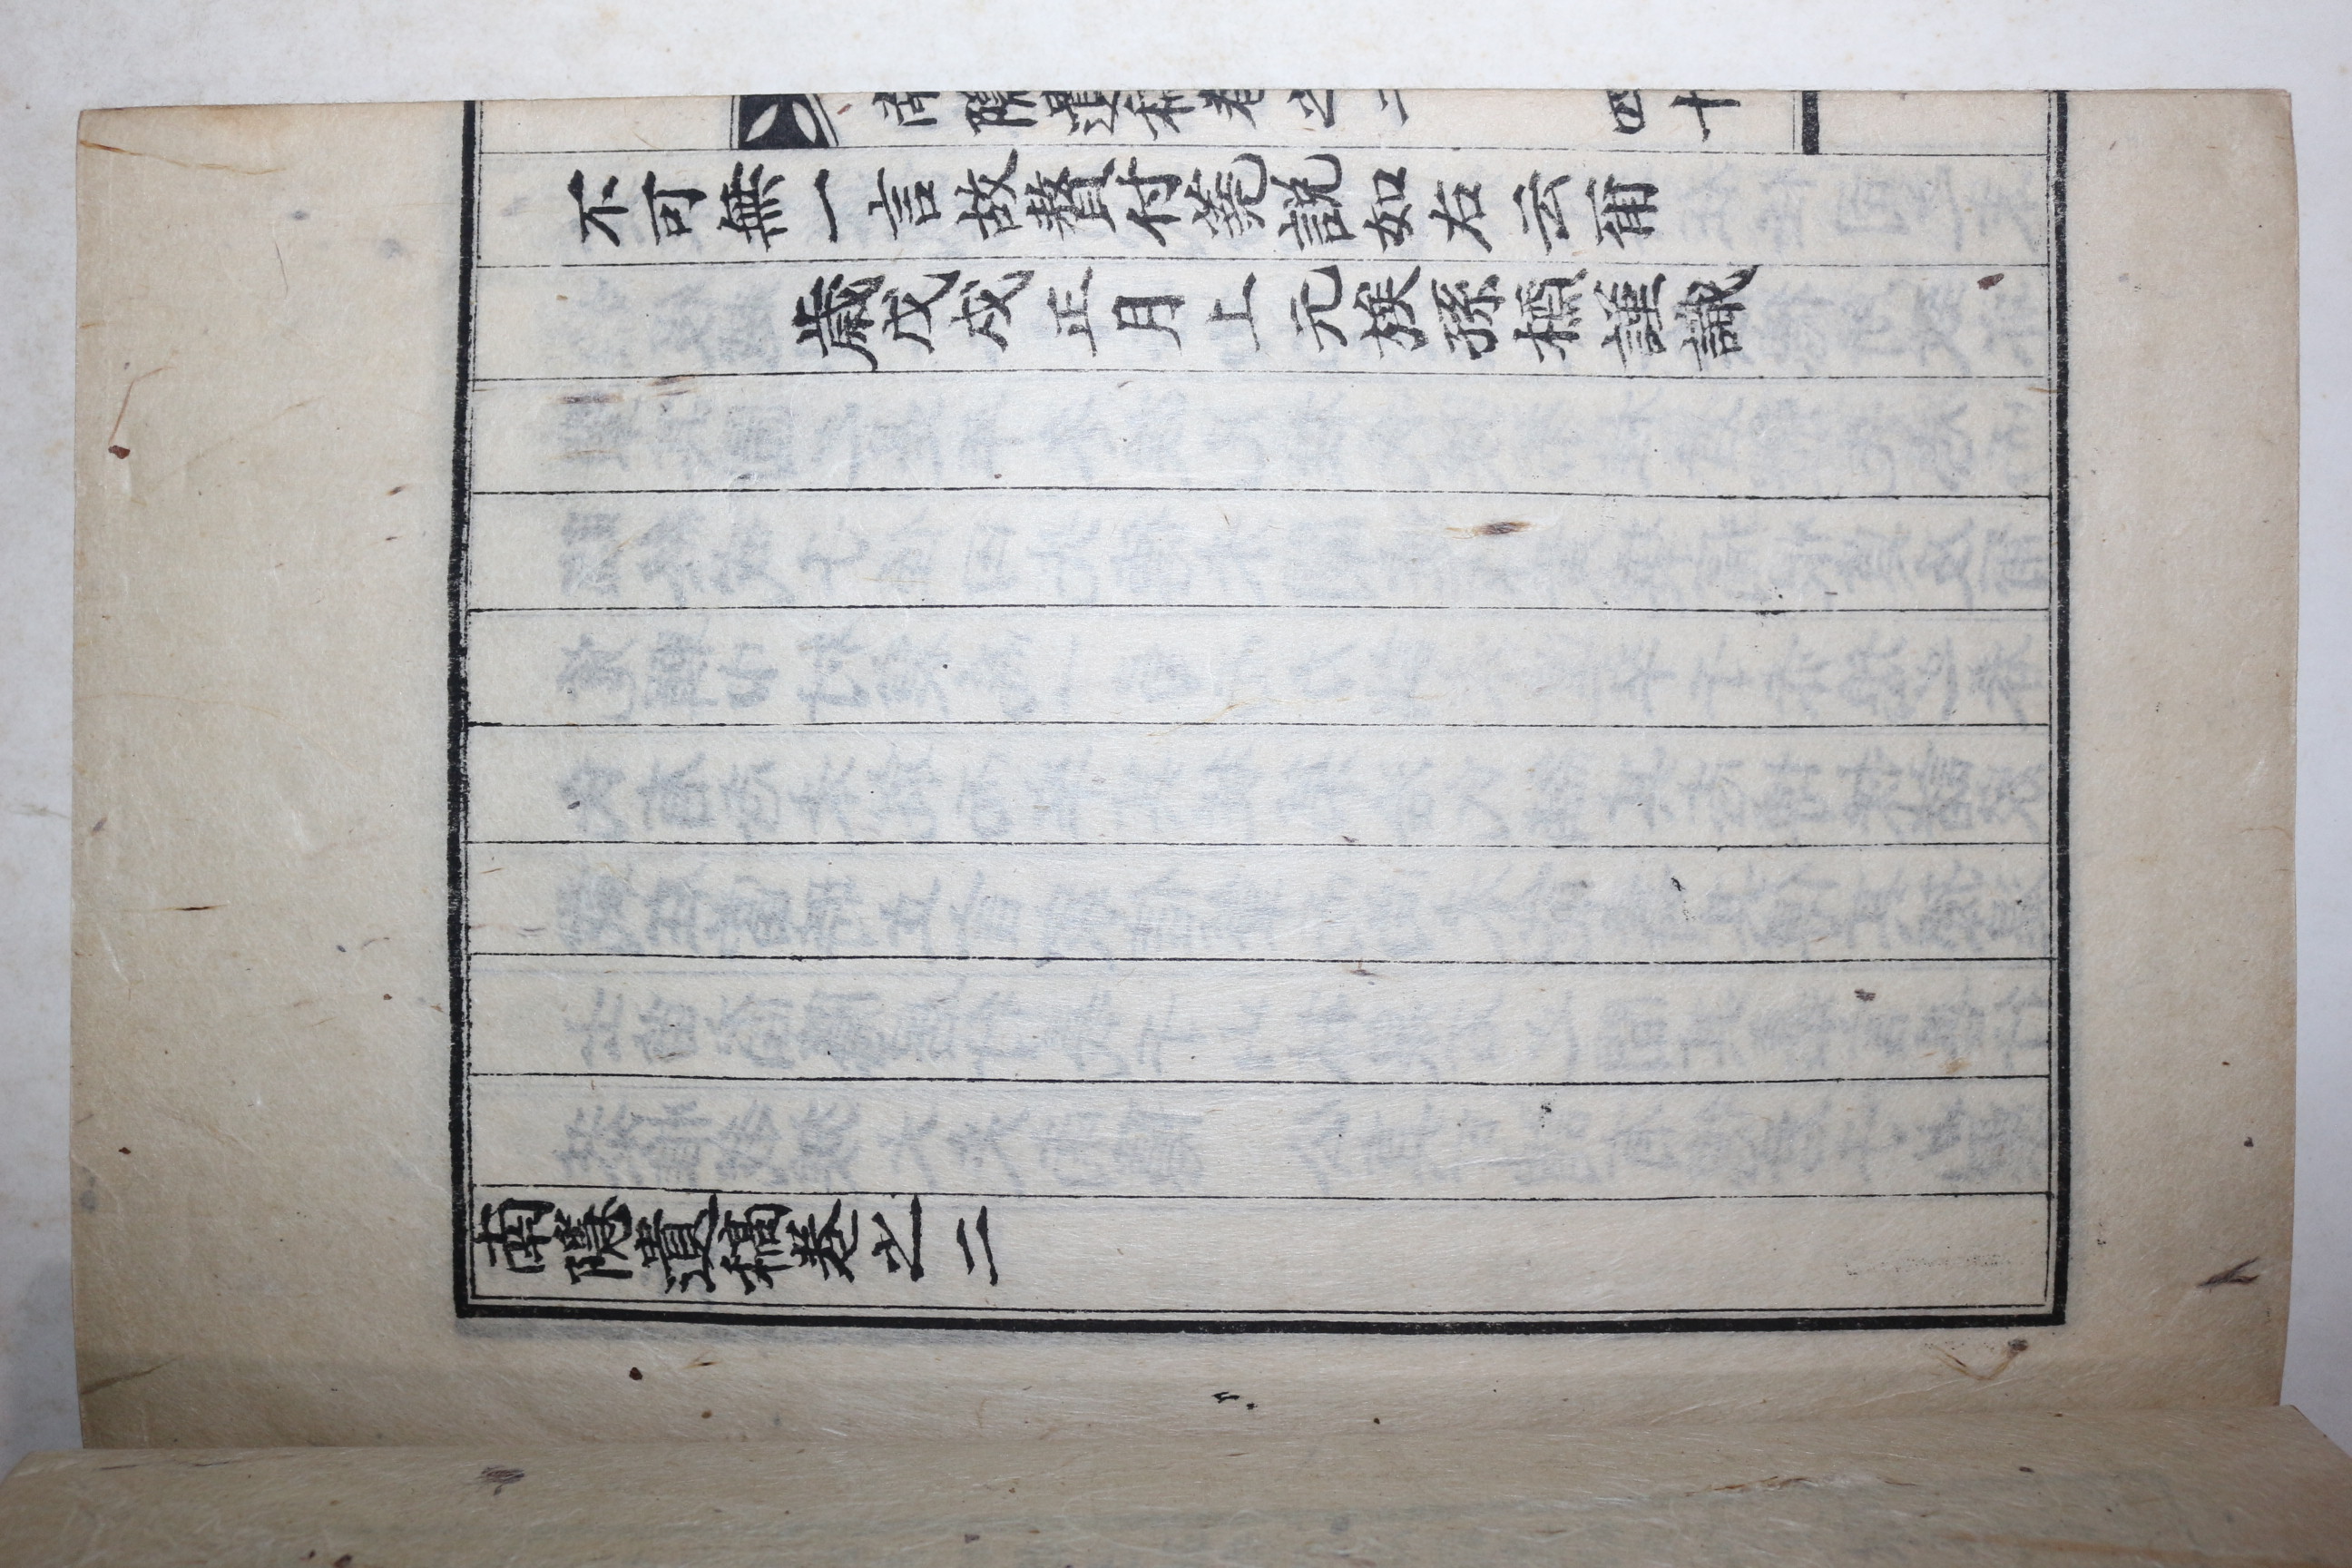 南隱遺稿卷之二 四十
不可無一言故贅付荒說如右云甭
歲戊戌正月上元族孫謹識
南隱遺稿卷之二